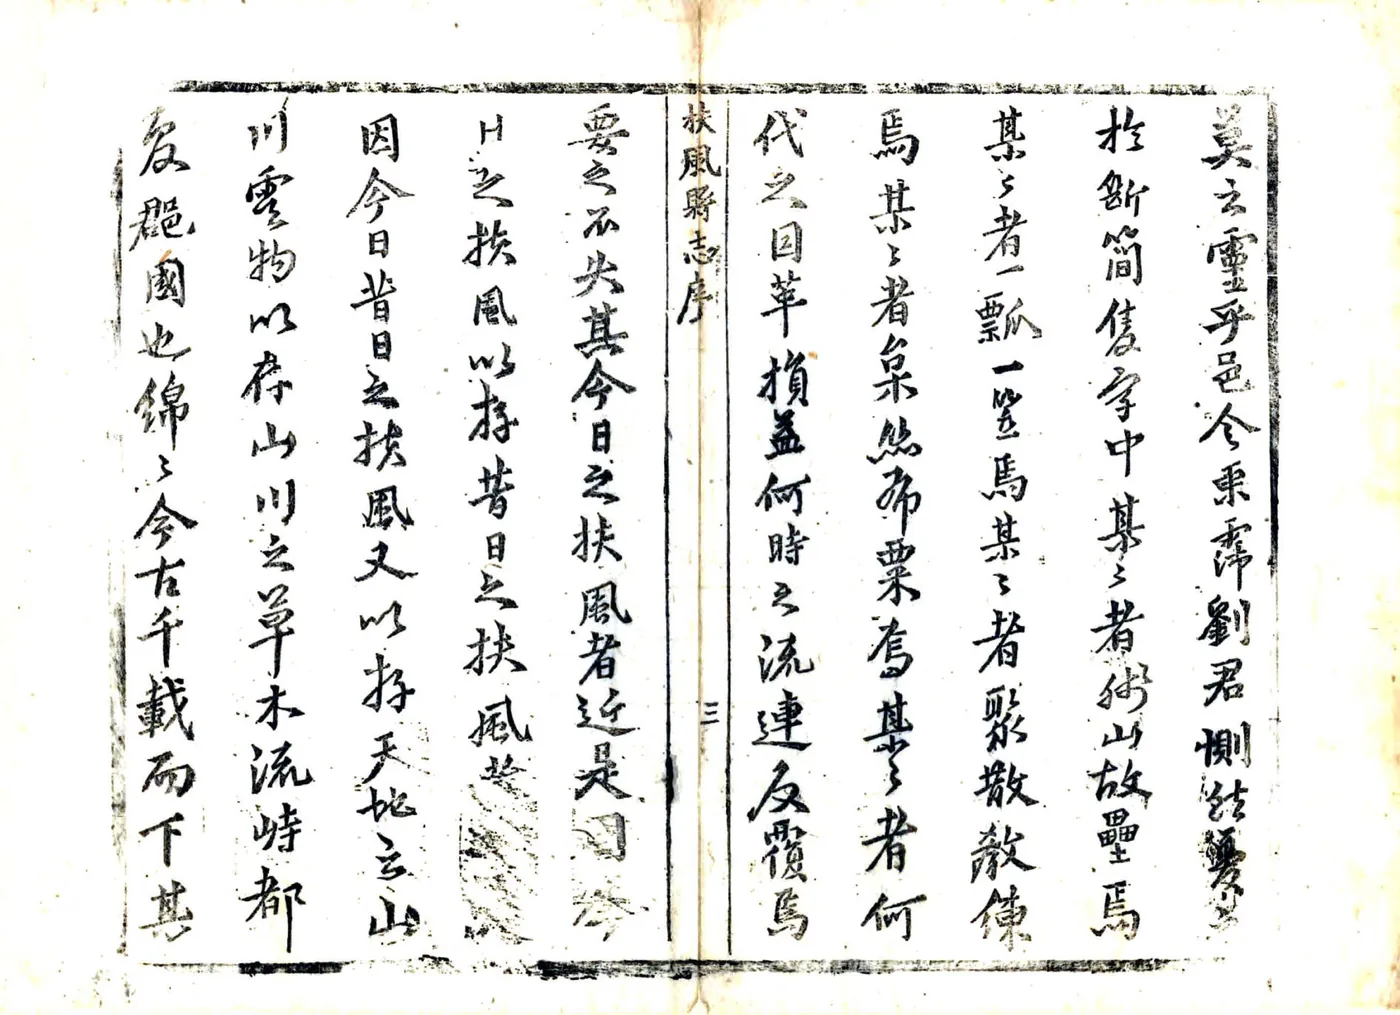 莫之靈乎邑令東霈劉君惻然
於斷簡隻字中某々者術山故壘焉
某々者一瓢一笠焉某々者聚散教練
焉某々者枲絲布粟焉某々者何
代之因革損益何時之流連反覆焉
扶風縣志序
三
要之不失其今日之扶風者近是
日之扶風以存昔日之扶風
因今日昔日之扶風又以存天地之山
川雲物以存山川之草木流峙都
夏郡國也錦々今古千載而下其